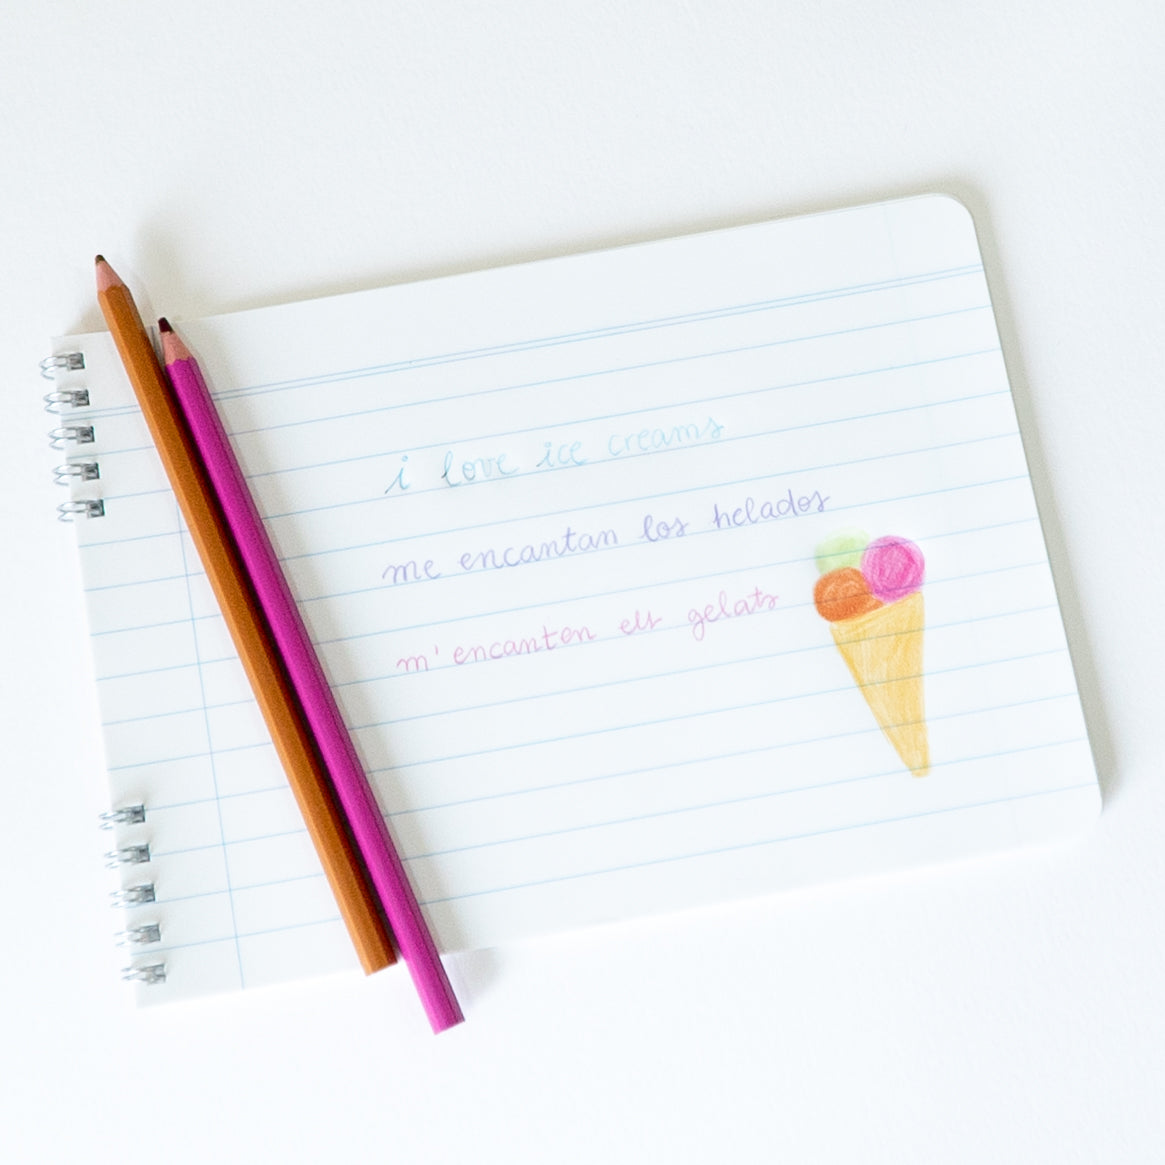 i love ice creams
me encantan los helados
m'encanten els gelats